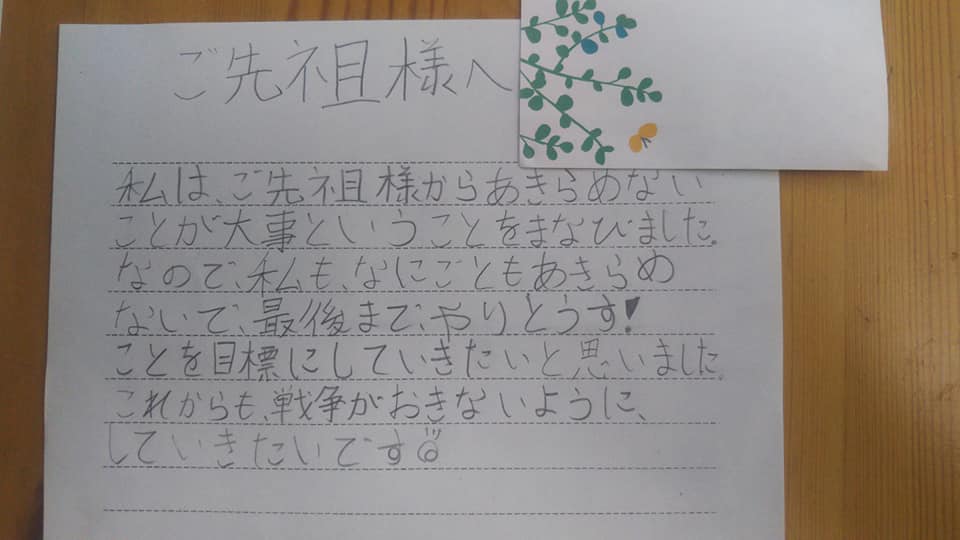 ご先祖様へ
私は、ご先祖様からあきらめない
ことが大事ということをまなびました。
なので、私も、なにごともあきらめ
ないで、最後まで、やりとうす!
ことを目標にしていきたいと思いました。
これからも、戦争がおきないように、
していきたいです